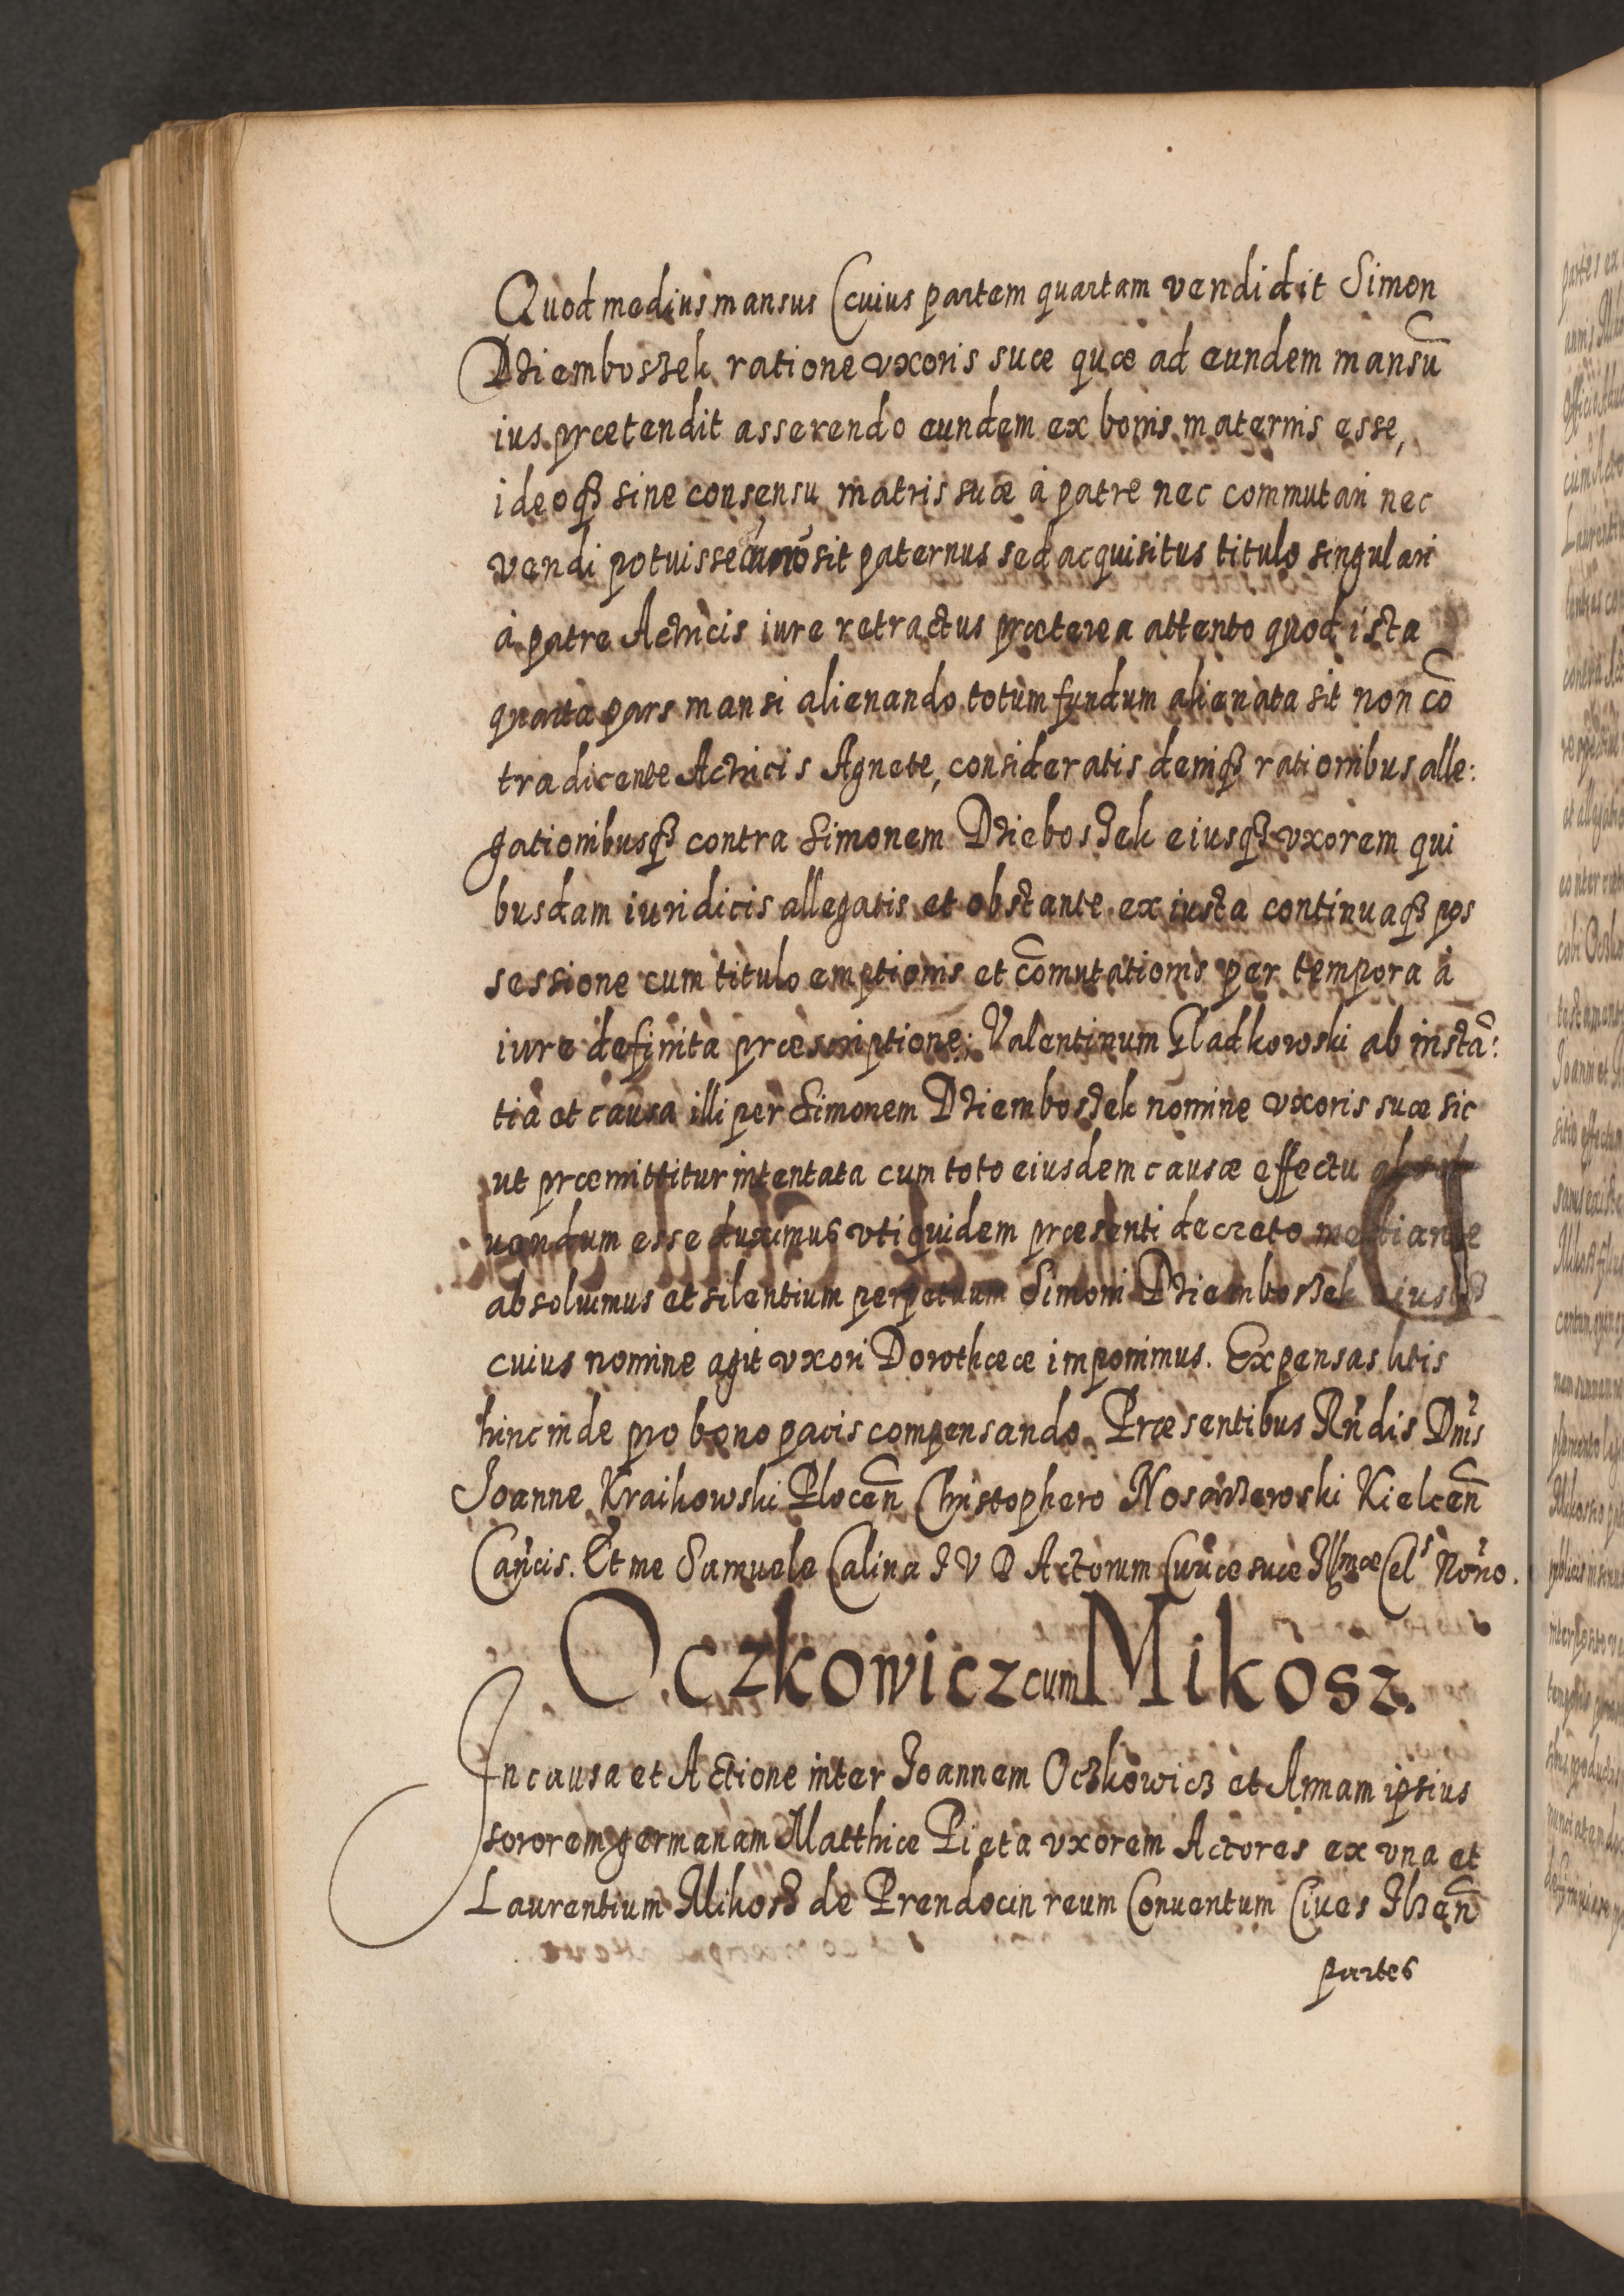 Quod medius mansus (cuius partem quartam vendidit Simon
Dziemboszek ratione vxoris suæ quæ ad eundem mansũ
ius prætendit asserendo eundem ex bonis maternis esse,
ideoqꝫ sine consensu matris suæ à patre nec commutari nec
vendi potuisse sit paternus sed acquisitus titulo singulari
à patre Actricis iure retractus præterea attento quod ista
quarta pars mansi alienando totum fundum alienata sit non cõ
tradicente Actricis Agnete, consideratis deniqꝫ rationibus alle:
gationibusqꝫ contra Simonem Dzieboszek eiusqꝫ vxorem qui
busdam iuridicis allegatis et obstante ex iusta continuaqꝫ pos
sessione cum titulo emptionis et cõmutationis per tempora à
iure definita præscriptione; Valentinum Gladkowski ab instã:
tia et causa illi per Simonem Dziemboszek nomine vxoris suæ sic
ut præmittitur intentata cum toto eiusdem causæ effectu absol
uendum esse duximus vti quidem præsenti decreto mediante
absoluimus et silentium perpetuum Simoni Dziemboszek eiusqꝫ
cuius nomine agit vxori Dorotheæ imponimus. Expensas litis
hinc inde pro bono pacis compensando. Præsentibus Rñdis Dnis
Joanne Kraikowski Plocen̄ Christophero Kielcen̄
Cañcis. Et me Samuele Calina J V D Actorum Curiæ suæ Illmæ Cels Norio.
Oczkowicz cum Mikosz.
In causa et Actione inter Joannem Oczkowicz et Annam ipsius
sororem germanam Matthiæ Pieta vxorem Actores ex vna et
Laurentium Mikosz de Prendocin reum Conuentum Ciues Ilzen̄
partes